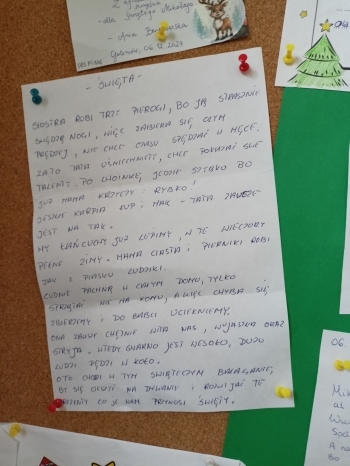 Z
-dla Świętego Mikołaja
- ŚWIĘTA -
SIOSTRA ROBI TRZY PIEROGI, BO JĄ STRASZNIE
SWĘDZĄ NOGI, WIĘC ZABIERA SIĘ CZYM
PRĘDZEJ, NIE CHCE CZASU SPĘDZAĆ W MĘCE.
ZA TO TATA UŚMIECHNIĘTY, CHCE POKAZAĆ SWE
TALENTY. PO CHOINKĘ JEDZIE SZYBKO BO
JUŻ MAMA KRZYCZY: RYBKO!
JESZCZE KARPIA KUP I MAK - TATA ZAWSZE
JEST NA TAK.
MY ŁAŃCUCHY JUŻ LEPIMY, W TE WIECZORY
PEŁNE ZIMY. MAMA CIASTA I PIERNIKI ROBI
JAK Z PIASKU LUDZIKI.
CUDNIE PACHNIE W CAŁYM DOMU, TYLKO
SPRZĄTAĆ NIE MA KOMU, A WIĘC CHYBA SIĘ
ZBIERZEMY I DO BABCI UCIEKNIEMY.
ONA ZAWSZE CHĘTNIE WITA NAS, WUJASZKA ORAZ
STRYJA. WTEDY GWARNO JEST WESOŁO, DUŻO
LUDZI PĘDZI W KOŁO.
OTO CHODZI W TYM ŚWIĄTECZNYM BAŁAGANIE,
BY SIĘ NA DYWANIE I ROZWIJAĆ TE
CO JE NAM PRZYNOSI ŚWIĘTY.
06.